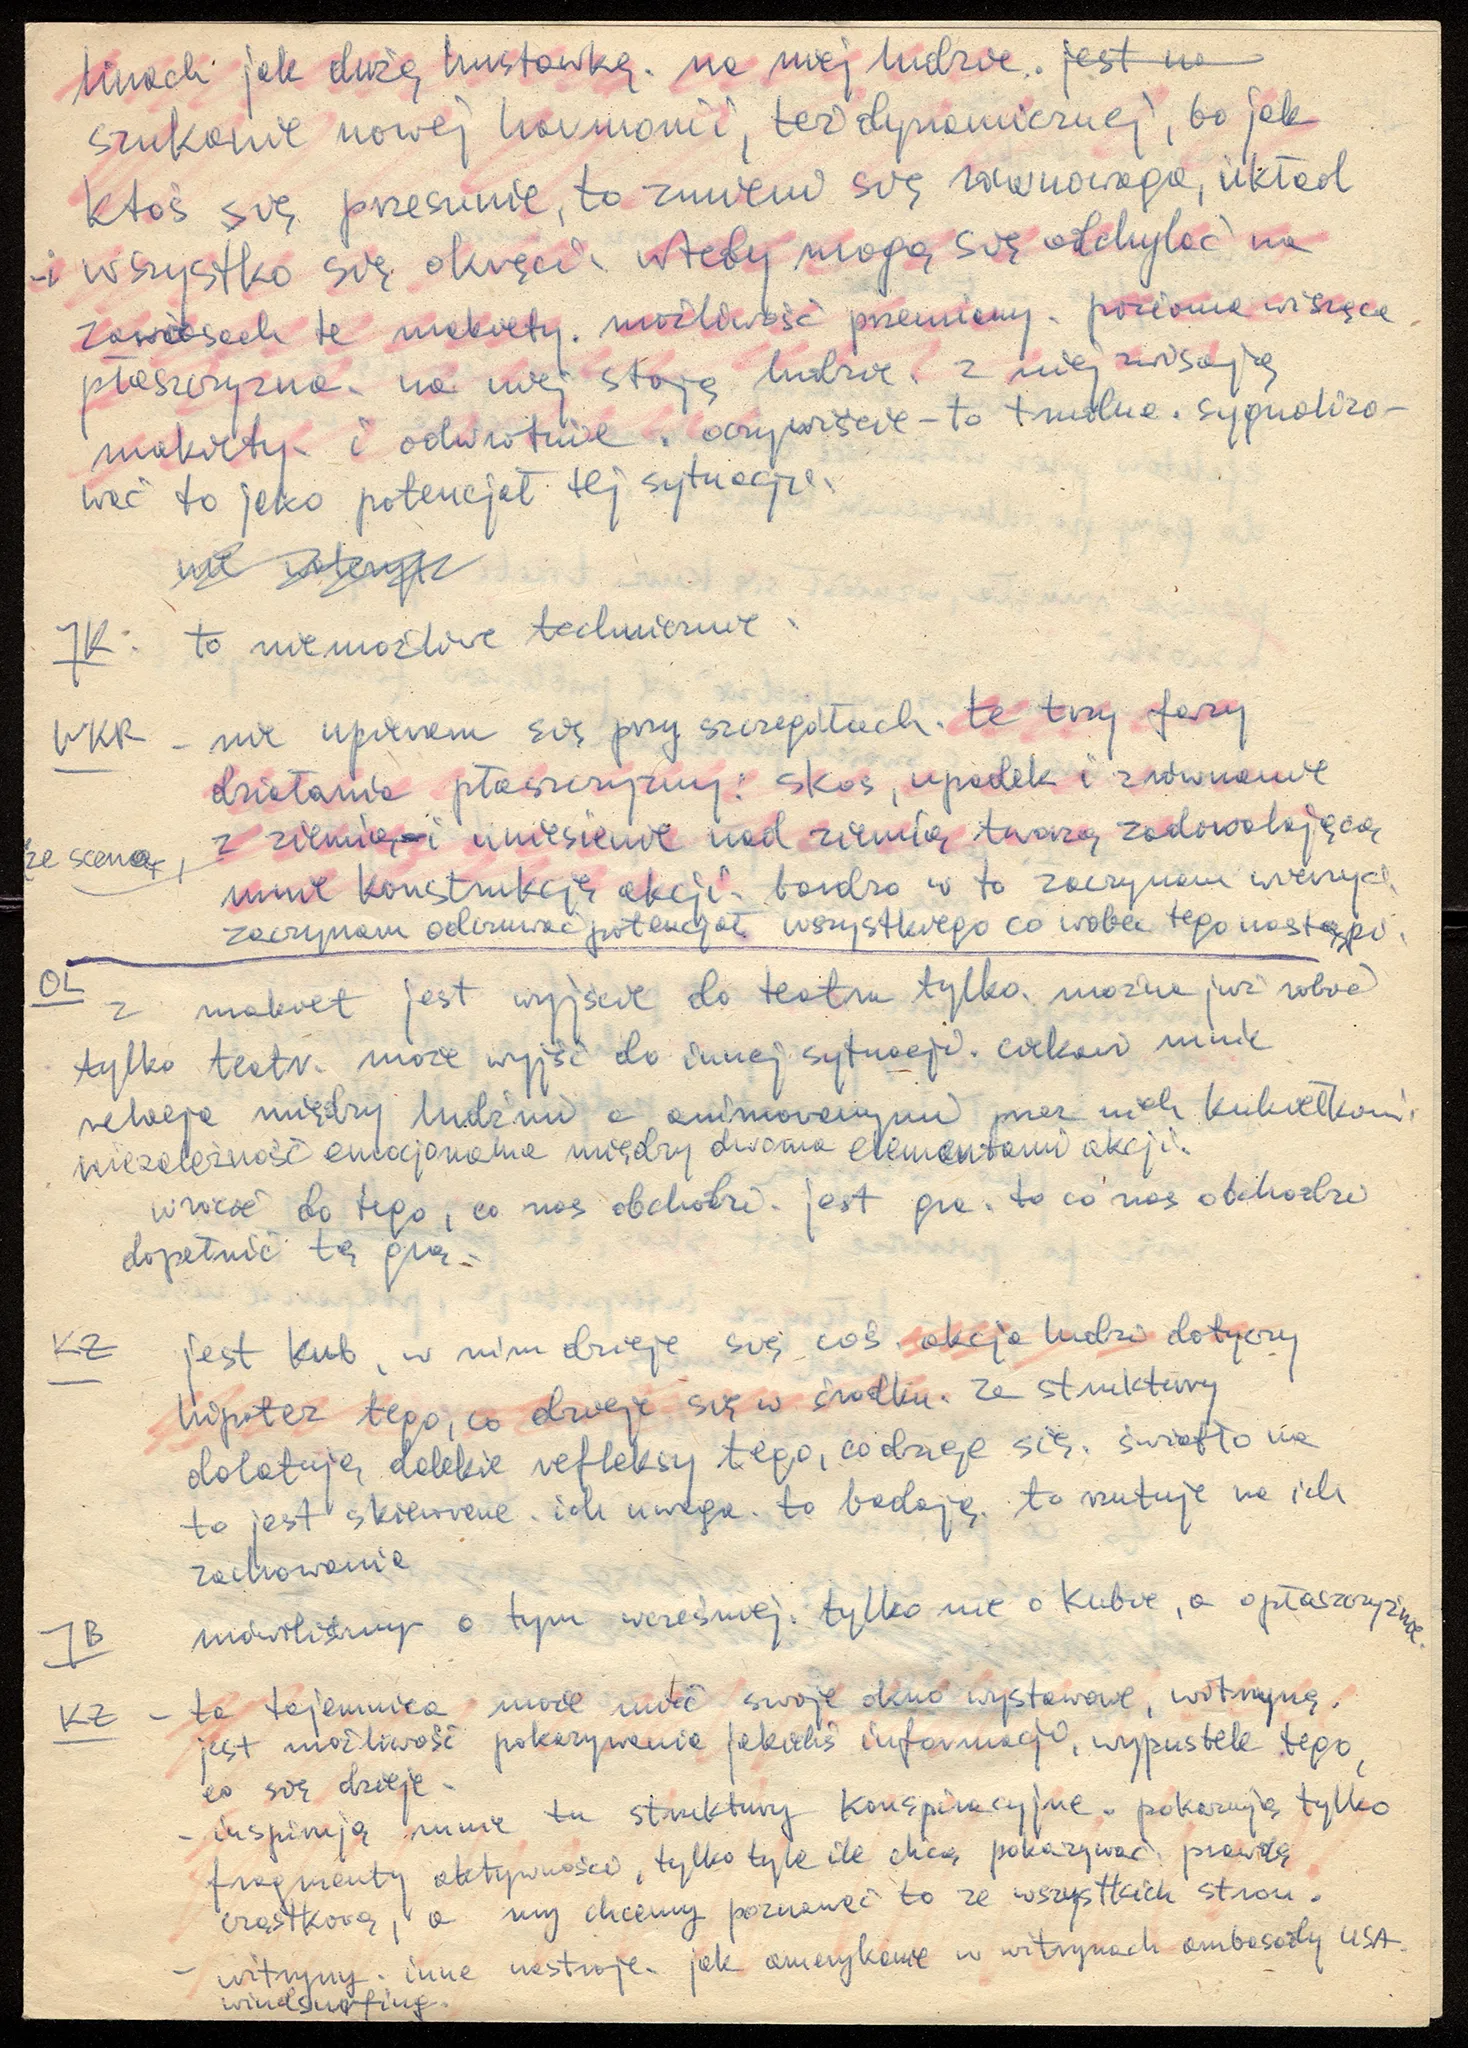 linach jak dużą huśtawką. na niej ludzie. jest na
szukanie nowej harmonii, też dynamicznej, bo jak
ktoś się przesunie, to zmieni się równowaga, układ
-i wszystko się okręci. wtedy mogą się odchylać na
zawiasach te makiety. możliwość przemiany. pozioma wisząca
płaszczyzna. na niej stoją ludzie. z niej zwisają
makiety. i odwrotnie. oczywiście - to trudne. sygnalizo-
wać to jako potencjał tej sytuacji.
nie
JK: to niemożliwe technicznie.
WKR - nie upieram się przy szczegółach. te trzy fazy
działania płaszczyzny: skos, upadek i zrównanie
z ziemią - i uniesienie nad ziemią tworzą zadowalającą
ze sceną,
mnie konstrukcję akcji. bardzo w to zaczynam wierzyć.
zaczynam odczuwać potencjał wszystkiego co wobec tego nastąpi.
OL
z makiet jest wyjście do teatru tylko. można już robić
tylko teatr. może wyjść do innej sytuacji. ciekawi mnie
relacja między ludźmi a animowanymi przez nich kukiełkami.
niezależność emocjonalna między dwoma elementami akcji.
wrócić do tego, co nas obchodzi. jest gra. to co nas obchodzi
dopełnić tą grą.
KZ jest kub, w nim dzieje się coś. akcja ludzi dotyczy
hipotez tego, co dzieje się w środku. ze struktury
dolatują dalekie refleksy tego, co dzieje się. światło na
to jest skierowane. ich uwaga. to badają. to rzutuje na ich
zachowania
JB mówiliśmy o tym wcześniej. tylko nie o kubie, a o płaszczyźnie.
KZ - ta tajemnica może mieć swoje okno wystawowe, witrynę.
jest możliwość pokazywania jakichś informacji, wypustek tego,
co się dzieje.
- inspirują mnie tu struktury konspiracyjne. pokazują tylko
fragmenty aktywności, tylko tyle ile chcą pokazywać. prawdę
cząstkową, a my chcemy poznawać to ze wszystkich stron.
- witryny. inne nastroje. jak amerykanie w witrynach ambasady USA.
windsurfing.